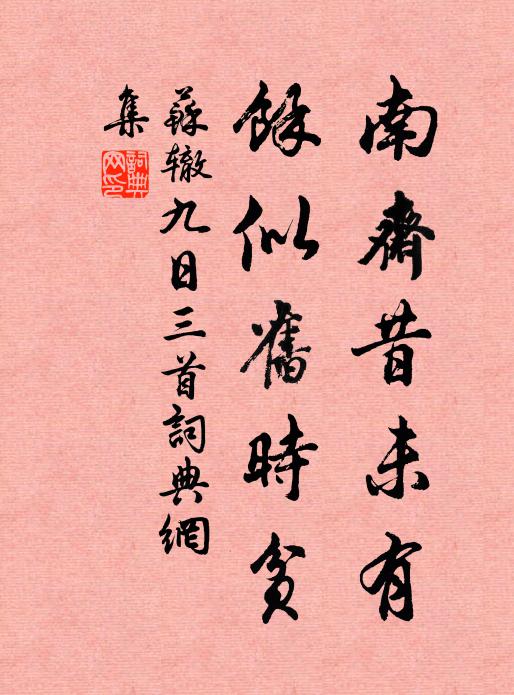 南齋昔未有
餘似舊時貧
蘇辙九日三首詞典網
集
詞典網印